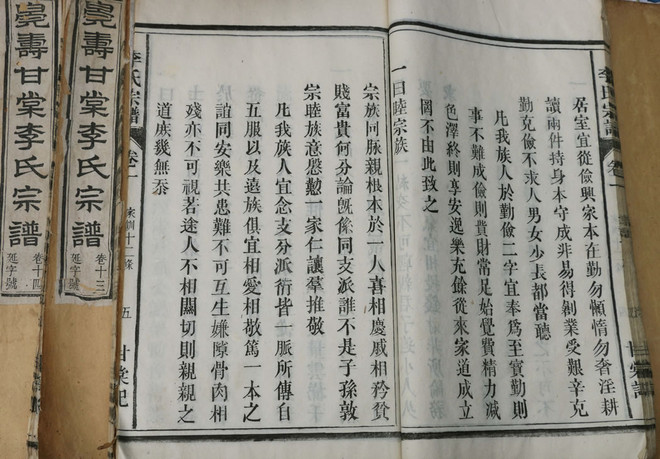 李氏宗譜 卷一
居室宜從儉興家本在勤勿懶惰勿奢淫耕
讀兩件持身本守成非易得創業受艱辛克
勤克儉不求人男女少長都當聽
凡我族人於勤儉二字宜奉爲至寶勤則
事不難成儉則貲財常足始覺費精力減
色澤終則享安逸樂充餘從來家道成立
罔不由此致之
一曰睦宗族
宗族同脉親根本於一人喜相慶戚相矜貧
賤富貴何分論旣係同支派誰不是子孫敦
宗睦族意慇懃一家仁讓羣推敬
凡我族人宜念支分派衍皆一脈所傳自
五服以及遠族俱宜相愛相敬篤一本之
誼同安樂共患難不可互生嫌隙骨肉相
殘亦不可視若途人不相關切則親親之
道庶幾無忝
李氏宗譜 卷一 家訓十一條 五 甘棠記
壽甘棠李氏宗譜
卷十三
延字號
壽甘棠李氏宗譜
卷十四
延字號